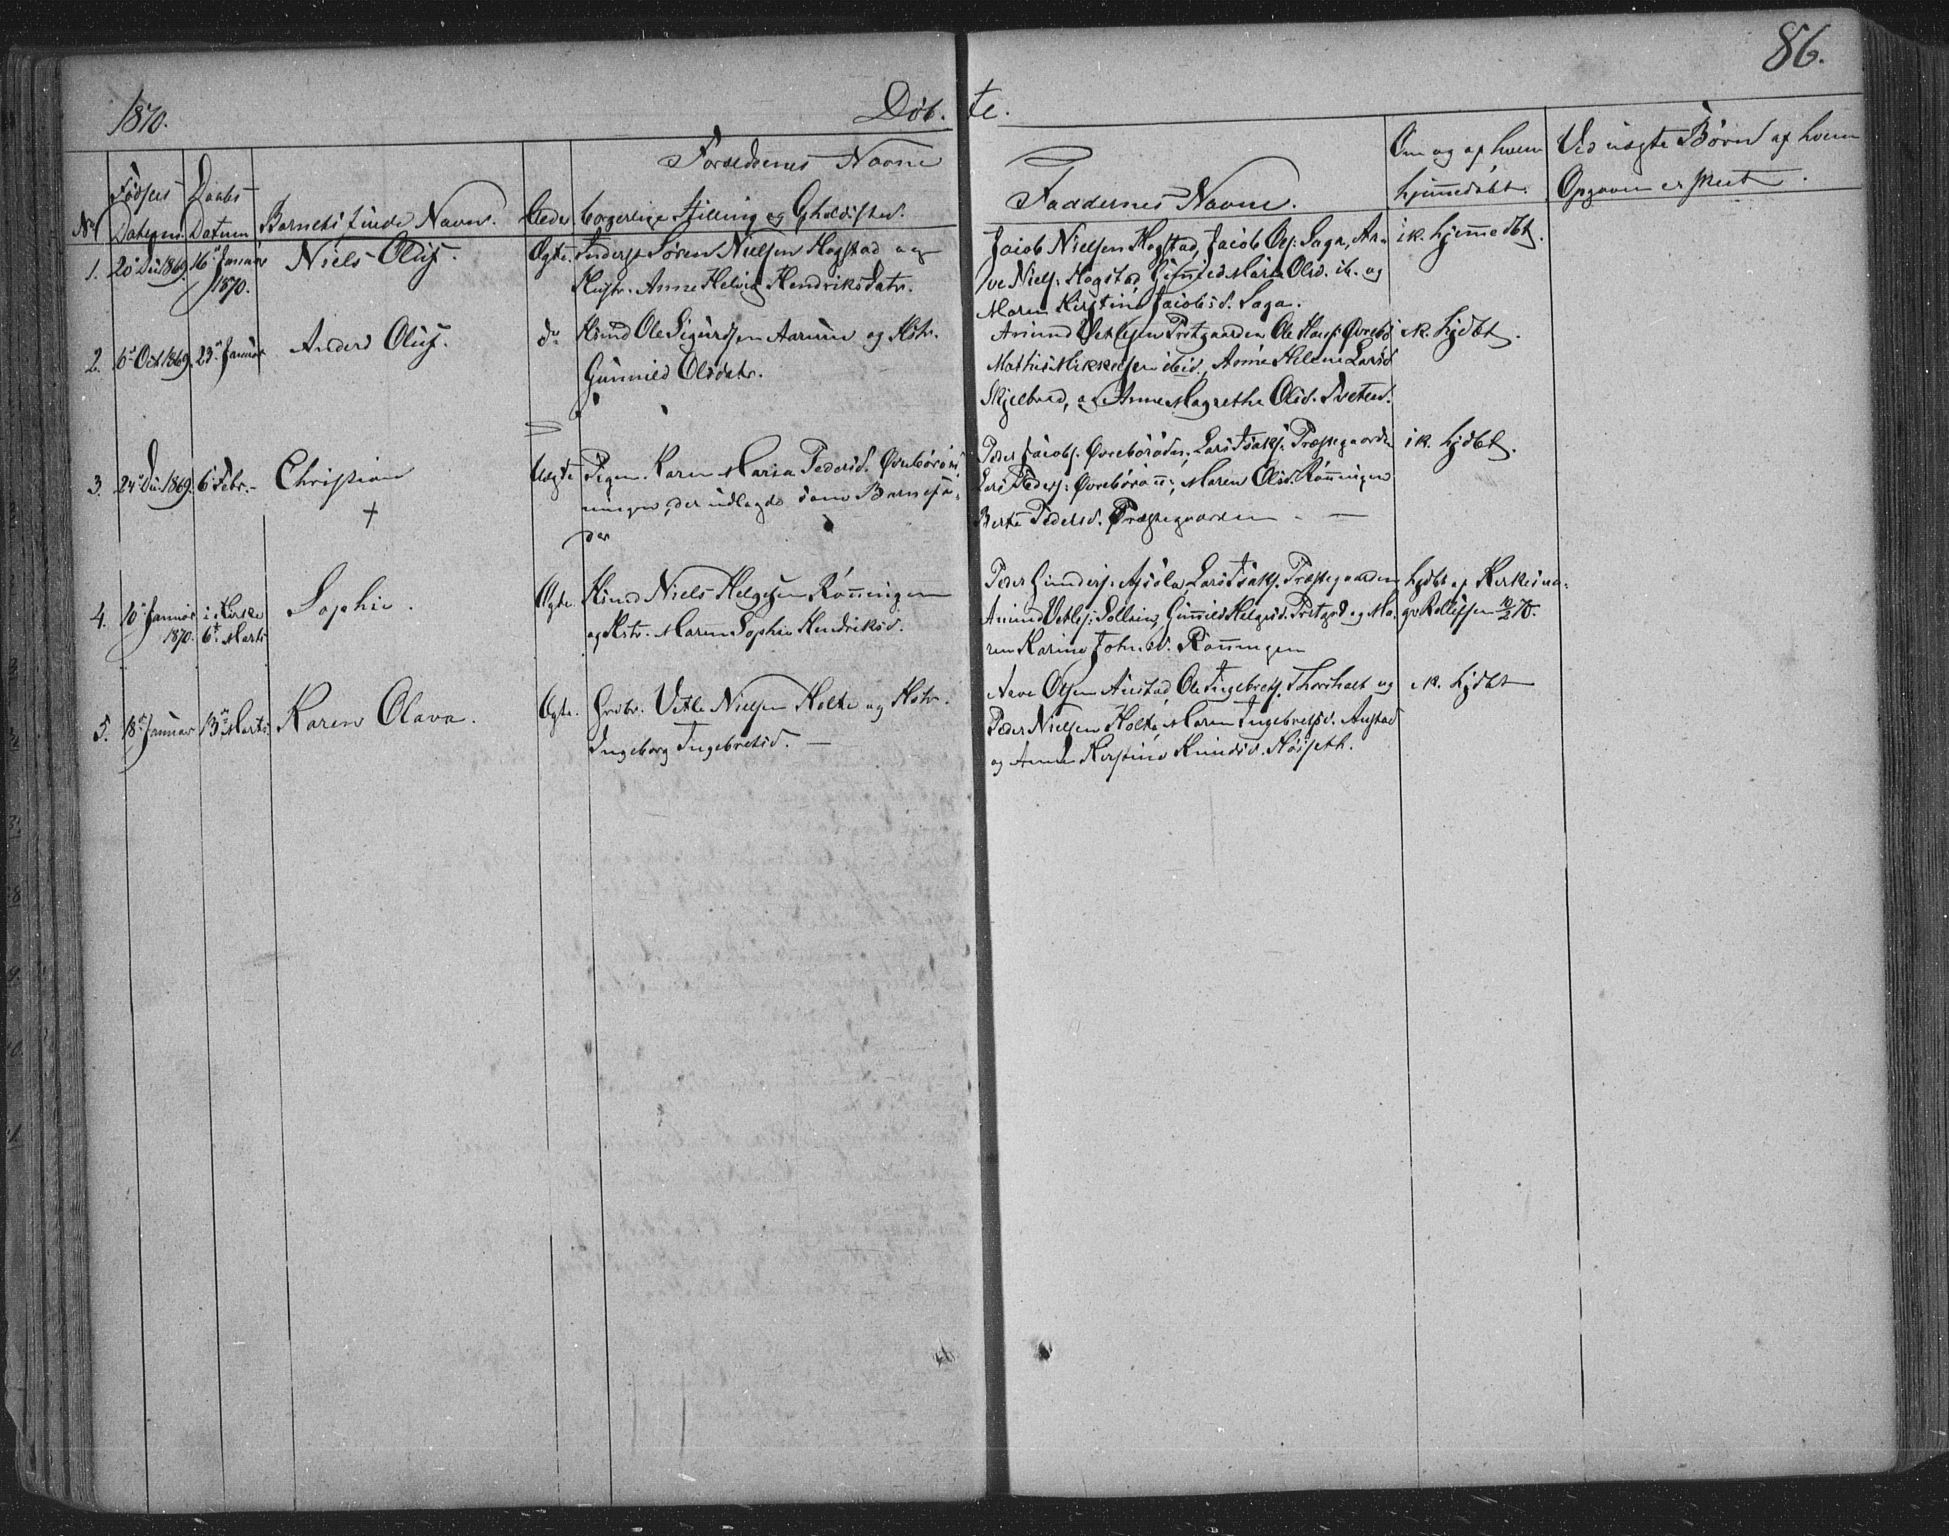 86.
1870.
Døb- te.
No
Fødsels Datum.
Daabs Datum
Barnets fulde Navn.
Forældrenes Navne
borgerlige Stilling og Opholdssted.
Faddernes Navne.
Om og af hvem
hjemmedøbt.
Ved uægte Børn af hvem
Opgaven er skeet.
1. 20de Dec 1869. 16de Januar
1870.
Niels Oluf.
Ægte.
Søren Nielsen Hogstad og
Hustr. Anne Helvig Hendriksdatr.
Jacob Nielsen Hogstad, Jacob Ols. Saga, Ar-
ve Niels. Hogstad, Gunnild Maria Olsd. ib. og
Maren Kirstine Jacobsd. Saga.
ik. hjemmedbt.
2. 6te Oct 1869. 23de Januar
Anders Oluf.
do
Kmd Ole Sigurdsen Aarum og Hstr.
Gunnild Olsdatr.
Amund Vetlesen Prstgaarden, Ole Hans. Øvrebø
Mathis Mikkelsen ibid., Anne Helene Larsd
Skjelbred, og Anne Magrethe Olsd. Tveten.
ik. hjdbt.
3. 24de Dec. 1869. 6te Febr.
Christian
+
Uægte
Pigen Karen Maria Pedersd.
ningen, der udlagde som Barnefa-
der
Peder Jacobs. Lars Isaks. Præstegaarden
Lars Peders. Maren Olsd. Rønningen
Berte Pedersd. Præstegaarden
ik. hjdbt.
4. 10de Januar
1870. i Kirke
6te Marts
Sophie.
Ægte.
Kmd Niels Helgesen Rønningen
og Hstr. Maren Sophie Hendriksd.
Peder Gunders. Lars Isaks. Præstegaarden
Amund Vetles. Sollien, Gunnild Helgesd. Prstgrd og Ma-
ren Karine Johnsd. Rønningen
hjdbt af Kirkesan-
ger Rollefsen 10/2 70.
5. 18de Januar 13de Marts
Karen Olava.
Ægte.
Grdbr. Vetle Nielsen Holte og Hstr.
Ingeborg Ingebretsd.
Aave Olsen Austad, Ole Ingebrets. Thorsholt og
Peder Nielsen Holte, Maren Ingebretsd. Austad
og Anne Kirstine Knudsd. Høiseth.
ik. hjdbt